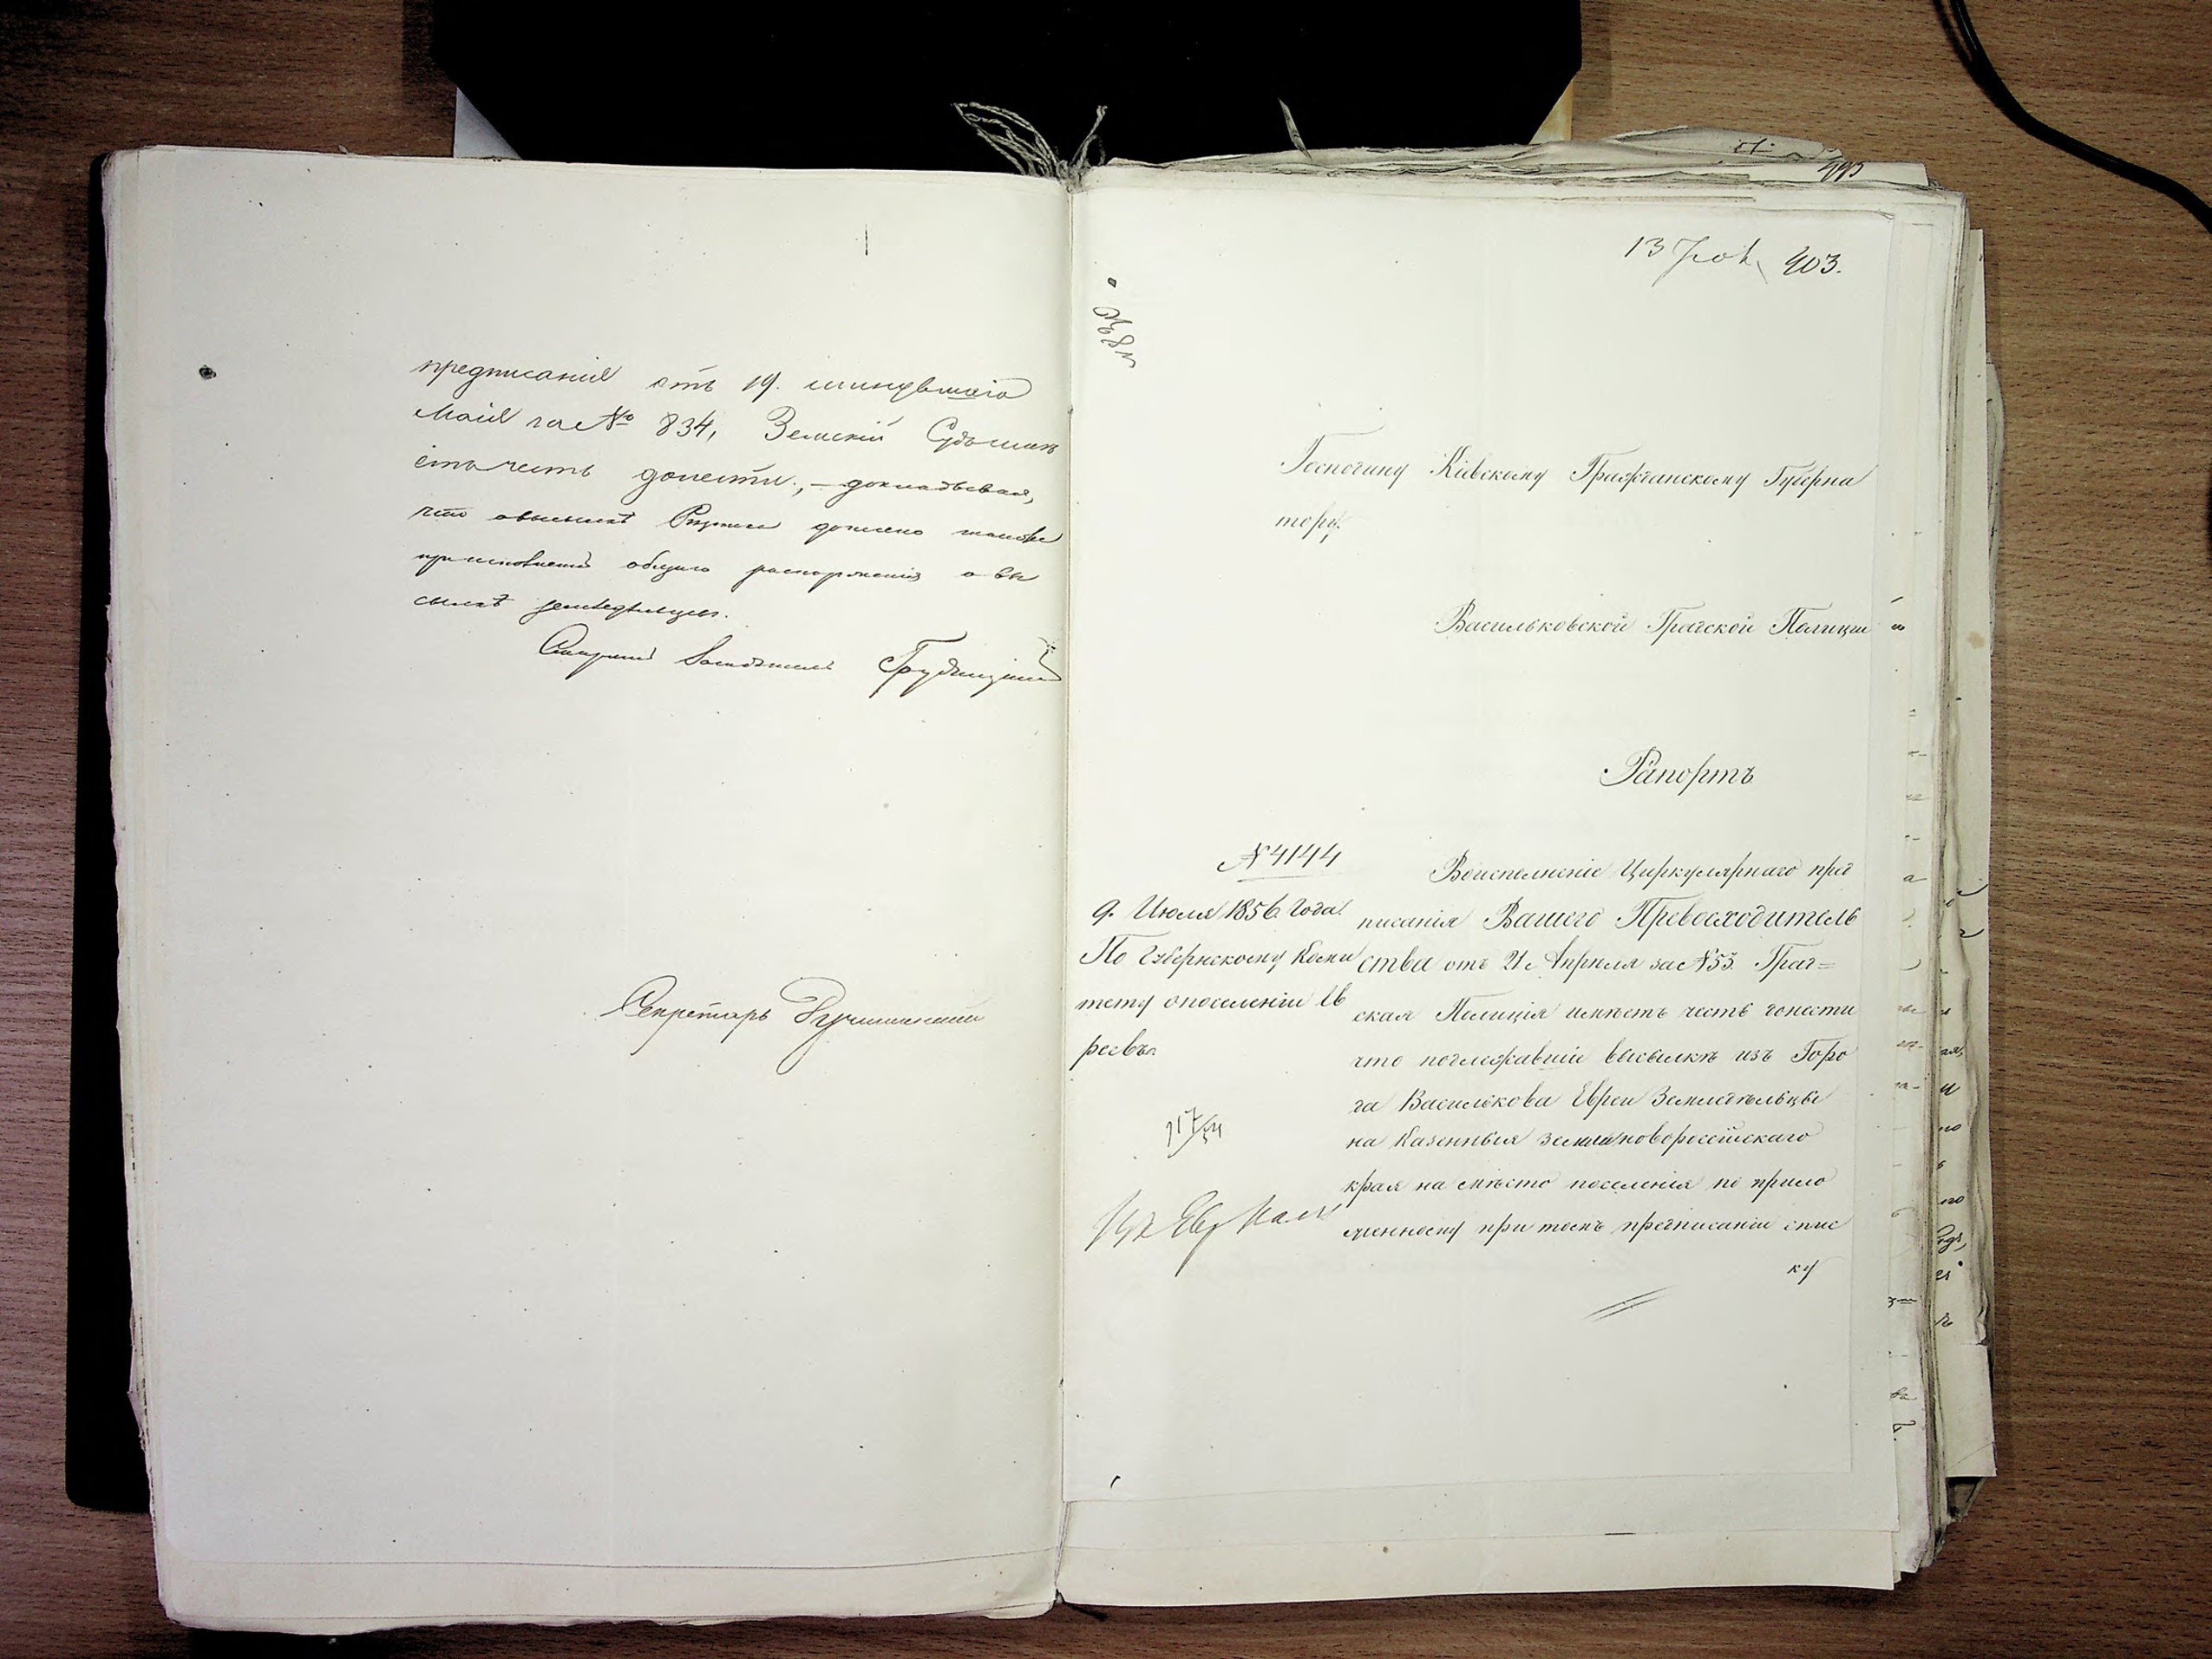 предписанія отъ 19. минувшаго
Маія за № 834, Земскій Судъ имѣ
етъ честь донести, – докладывая,
что о высылкѣ донесено также
при исполненіи общаго распоряженія о вы
сылкѣ земледѣльцевъ.
Старшій Засѣдатель
Секретарь
13 403.
Господину Кіевскому Гражданскому Губерна
тору,
Васильковской Градской Полиціи
Рапортъ
№ 4144
9. Июля 1856 года.
По Губернскому Коми
тету о поселеніи Ев
реевъ.
Во исполненіе Циркулярнаго пред
писанія Вашего Превосходитель
ства отъ 21 Апрѣля за № 53. Град=
ская Полиція имѣетъ честь донести
что подлежавшіе высылкѣ изъ Горо
да Василькова Евреи Земледѣльцы
на Казенныя земли новороссійскаго
края на мѣсто поселенія по прило
женному при томъ предписаніи спис
ку